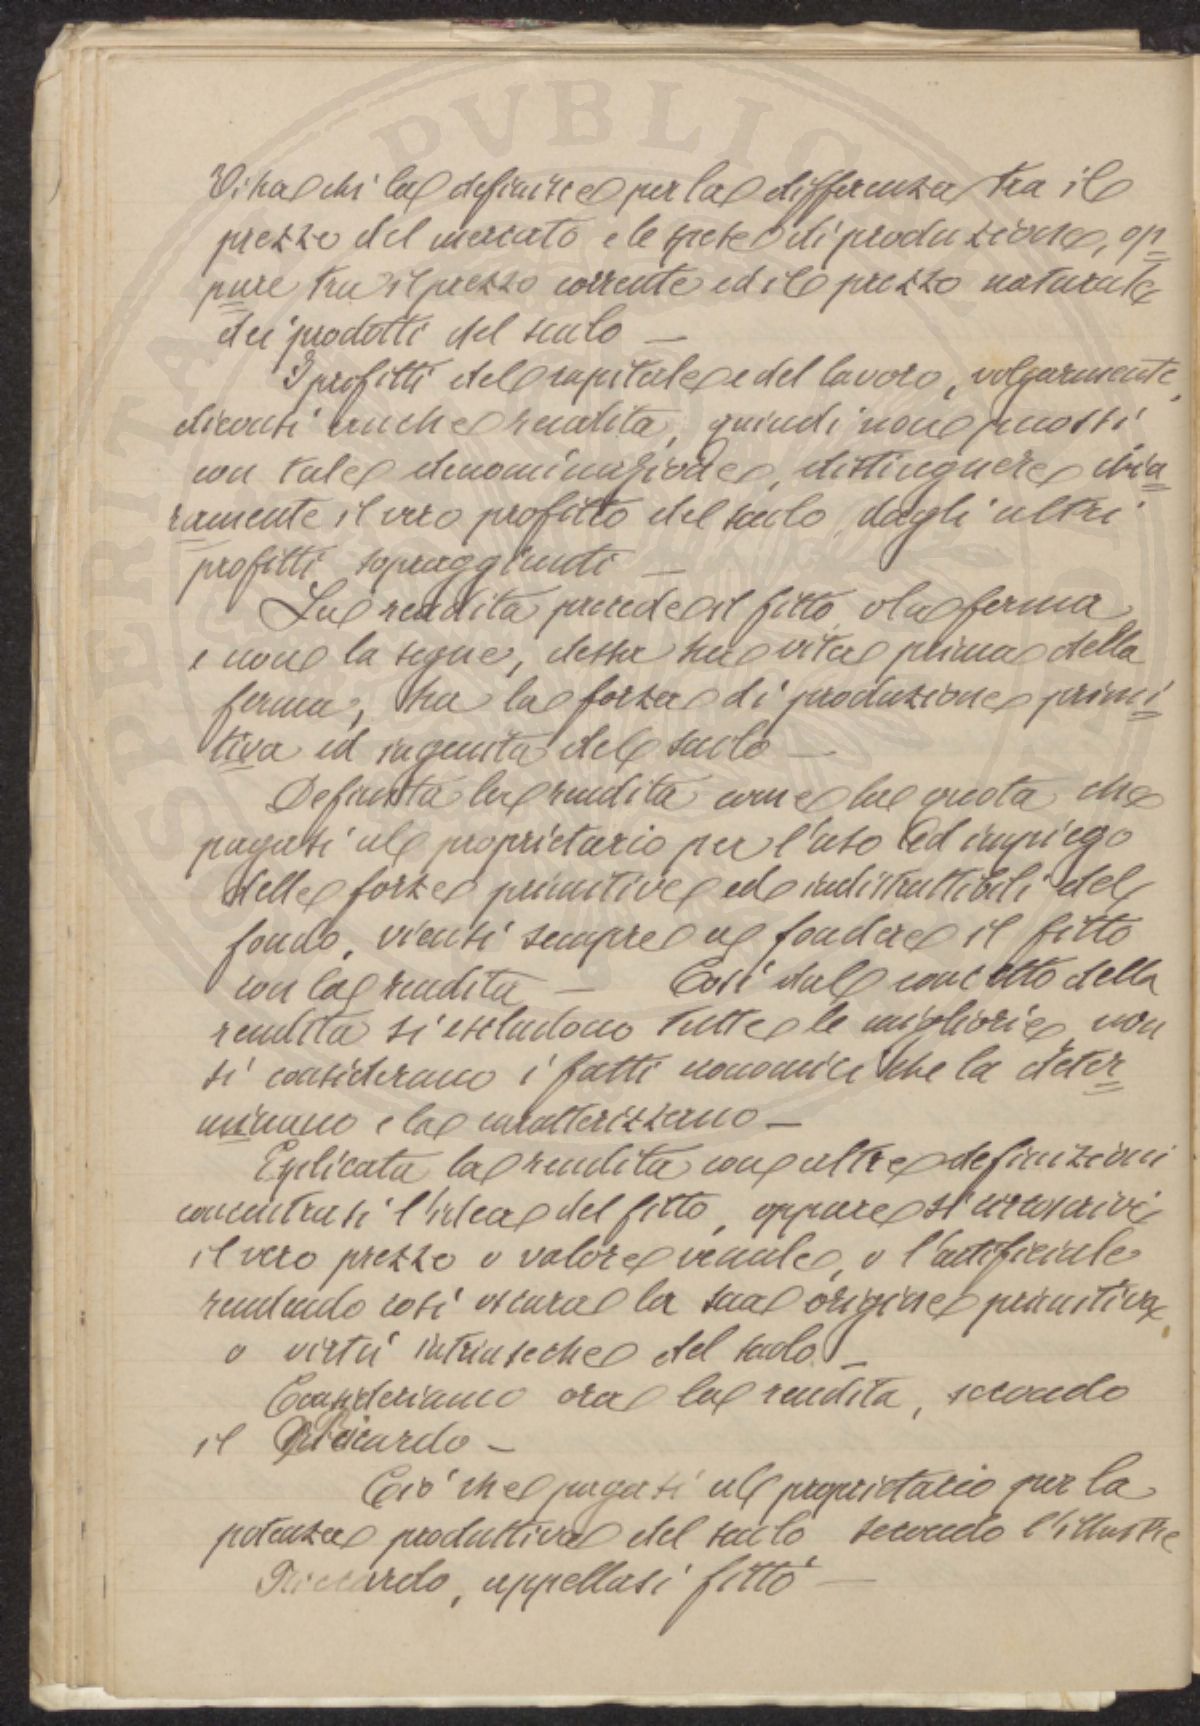 Vi ha chi la definisce per la differenza tra il
prezzo del mercato e le spese di produzione, op=
pure tra il prezzo corrente ed il prezzo naturale
dei prodotti del suolo —
I profitti del capitale e del lavoro, volgarmente,
diconsi anche rendita, quindi non puossi
con tale denominazione, distinguere chia=
ramente il vero profitto del suolo dagli altri
profitti sopraggiunti —
La rendita precede il fitto o la ferma
e non la segue, dessa ha vita prima della
ferma, ha la forza di produzione primi=
tiva ed ingenita del suolo —
Definita la rendita come la quota che
pagasi al proprietario per l'uso ed impiego
delle forze primitive ed indistruttibili del
fondo, viensi sempre a fondere il fitto
con la rendita — Così dal concetto della
rendita si escludono tutte le migliorie, non
si considerano i fatti economici che la deter=
minano e la caratterizzano —
Esplicata la rendita con altre definizioni
concentrasi l'idea del fitto, oppure si circoscrive
il vero prezzo o valore venale, o l'artificiale
rendendo così oscura la sua origine primitiva,
o virtù intrinseche del suolo —
Consideriamo ora la rendita, secondo
il Riccardo —
Ciò che pagasi al proprietario per la
potenza produttiva del suolo secondo l'illustre
Riccardo, appellasi fitto —
SPERITAT PVBLICA